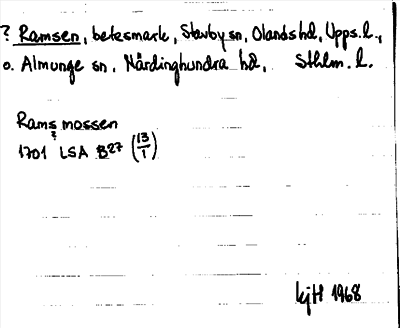 ? Ramsen, betesmark, Stavby sn, Olands hd, Upps. l.,
o. Almunge sn, Närdinghundra hd, Sthlm. l.
Rams mossen
?
1701 LSA B27 (13/1)
kjH 1968